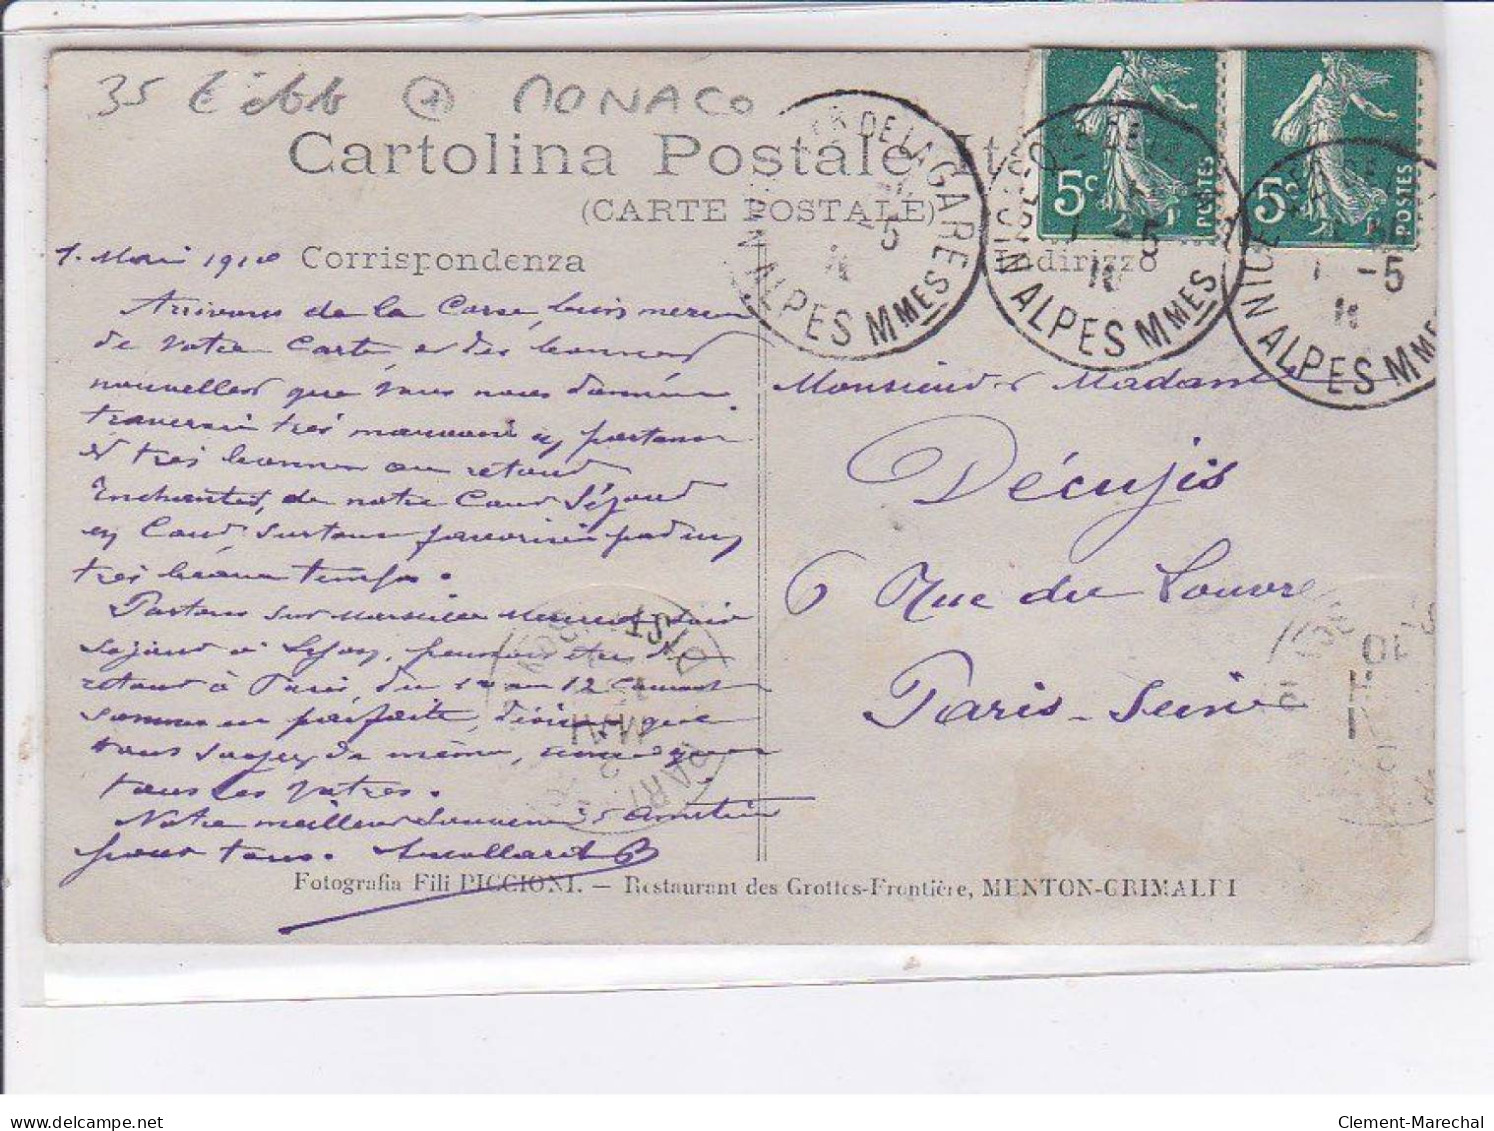 35 MONACO
Cartolina Postale Ita
(CARTE POSTALE)
5c POSTES
5c POSTES
DE LA GARE
ALPES MMES
-5
NICE
ALPES MMES
1 -5
10
NICE
ALPES MME
1 -5
Corrispondenza
Indirizzo
1. Mai 1910
Arrivons de la Corse, bien merci
de votre Carte et des bonnes
nouvelles que vous nous donnée
traversée très mauvaise en partant
et très bonne au retour
Enchantés, de notre Court Séjour
en Corse surtout favorisés par un
très beau temps.
Partons sur Marseille
Séjour à Lyon, pensons être de
retour à Paris, du 10 au 12 Courant
Sommes en parfaite, désirons que
vous soyez de même, ainsi que
tous les vôtres.
Notre meilleur souvenir & Amitiés
pour tous.
Monsieur & Madame
Décujis
6 Rue du Louvre
Paris-Seine
DIST
PARI
Fotografia Flli PICCIONI. — Restaurant des Grottes-Frontière, MENTON-GRIMALDI
delcampe.net
Clement-Marechal